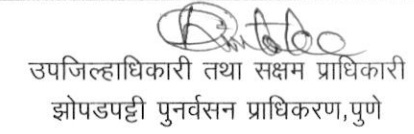 उपजिल्हाधिकारी तथा सक्षम प्राधिकारी
झोपडपट्टी पुनर्वसन प्राधिकरण,पुणे